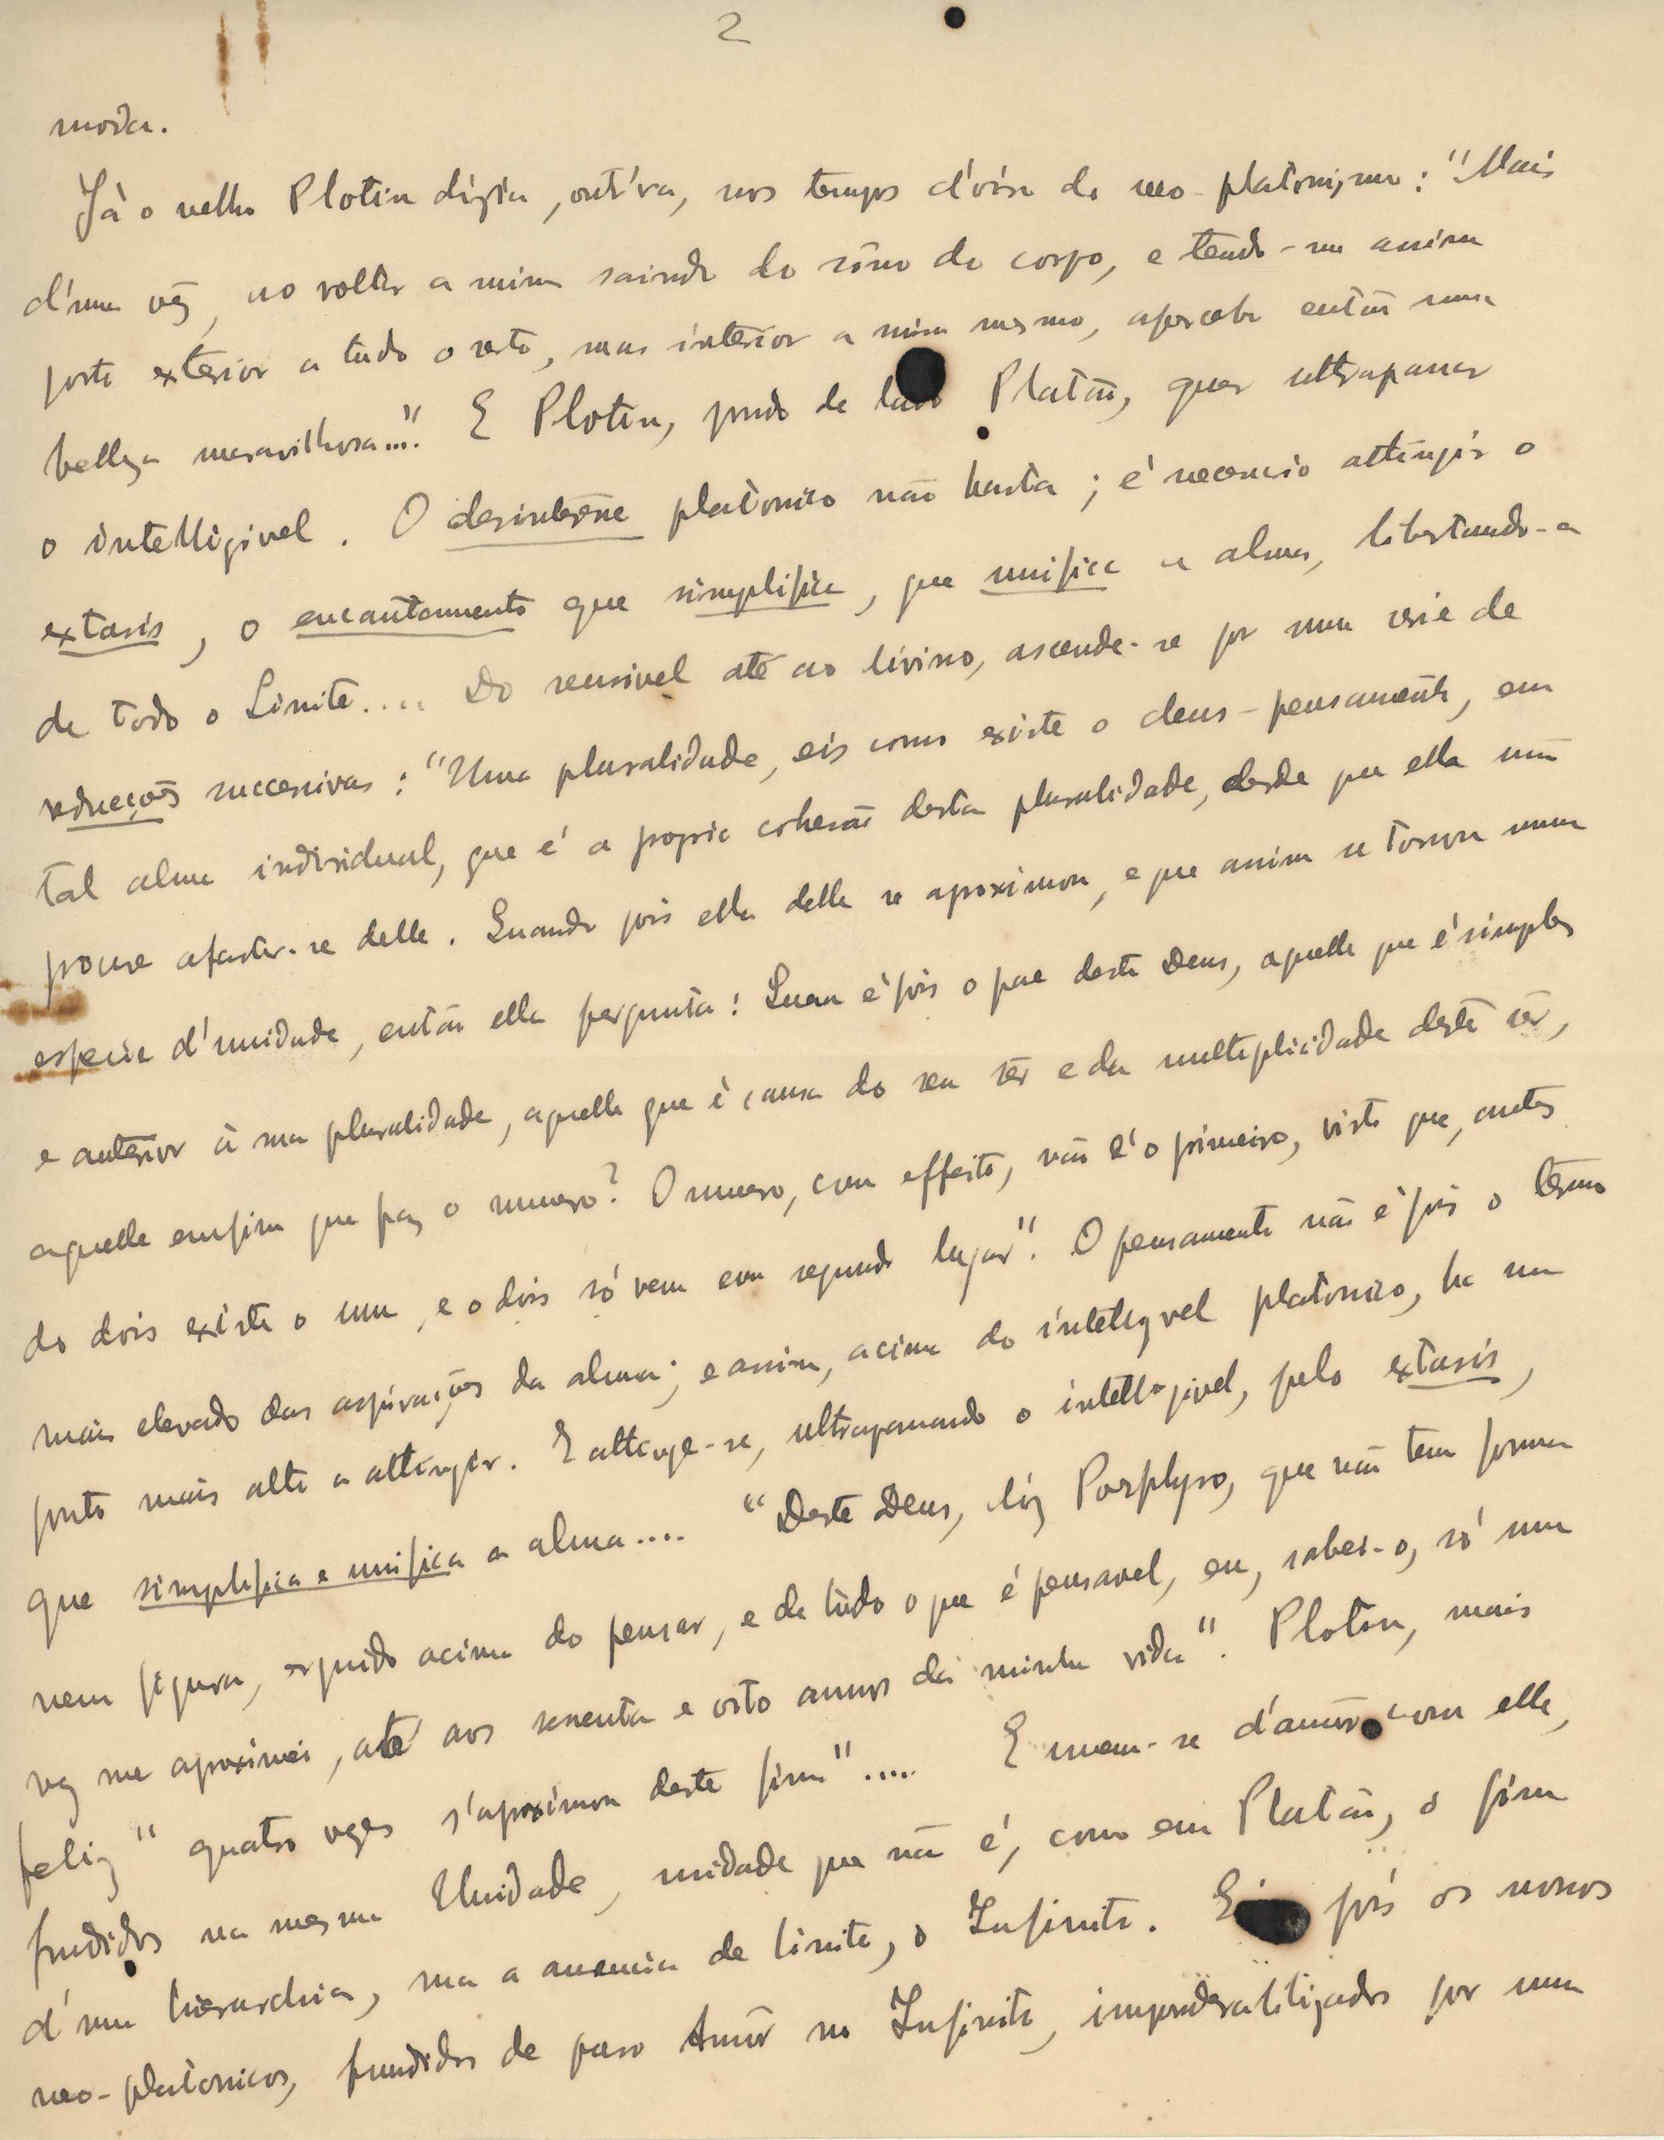 2
moda.
Já o velho Plotin dizia, outr'ora, nos tempos d'oiro do neo-platonismo: "Mais
d'uma vez, ao voltar a mim saindo do sôno do corpo, e tendo-me assim
posto exterior a tudo o resto, mas interior a mim mesmo, apercebi então uma
belleza maravilhosa...". E Plotin, pondo de lado Platão, quer ultrapassar
o intelligivel. O desinteresse platonico não basta; é necessario attingir o
extasis, o encantamento que simplifica, que unifica a alma, libertando-a
de todo o Limite.... Do sensivel até ao divino, ascende-se por uma serie de
reducções successivas: "Uma pluralidade, eis como existe o deus-pensamento, em
tal alma individual, que é a propria cohesão desta pluralidade, desde que ella não
prouve afastar-se delle. Quando pois ella delle se aproximou, e que assim se tornou numa
especie d'unidade, então ella pergunta: Quem é pois o pae deste Deus, aquelle que é simples
e anterior à sua pluralidade, aquelle que é causa do seu sêr e da multiplicidade deste sêr,
aquelle emfim que faz o numero? O numero, com effeito, não é o primeiro, visto que, antes
do dois existe o um, e o dois só vem em segundo lugar". O pensamento não é pois o têrmo
mais elevado das aspirações da alma; e assim, acima do intelligivel platonico, ha um
ponto mais alto a attingir. E attinge-se, ultrapassando o intelligivel, pelo extasis,
que simplifica e unifica a alma.... "Deste Deus, diz Porphyro, que não tem forma
nem figura, erguido acima do pensar, e de tudo o que é pensavel, eu, sabei-o, só uma
vez me aproximei, até aos sessenta e oito annos da minha vida". Plotin, mais
feliz "quatro vezes s'aproximou deste fim".... E unem-se d'amôr com elle,
fundidos na mesma Unidade, unidade que não é, como em Platão, o fim
d'uma hierarchia, mas a ausencia de limite, o Infinito. pois os nossos
neo-platonicos, fundidos de puro Amôr no Infinito, imponderabilizados por uma